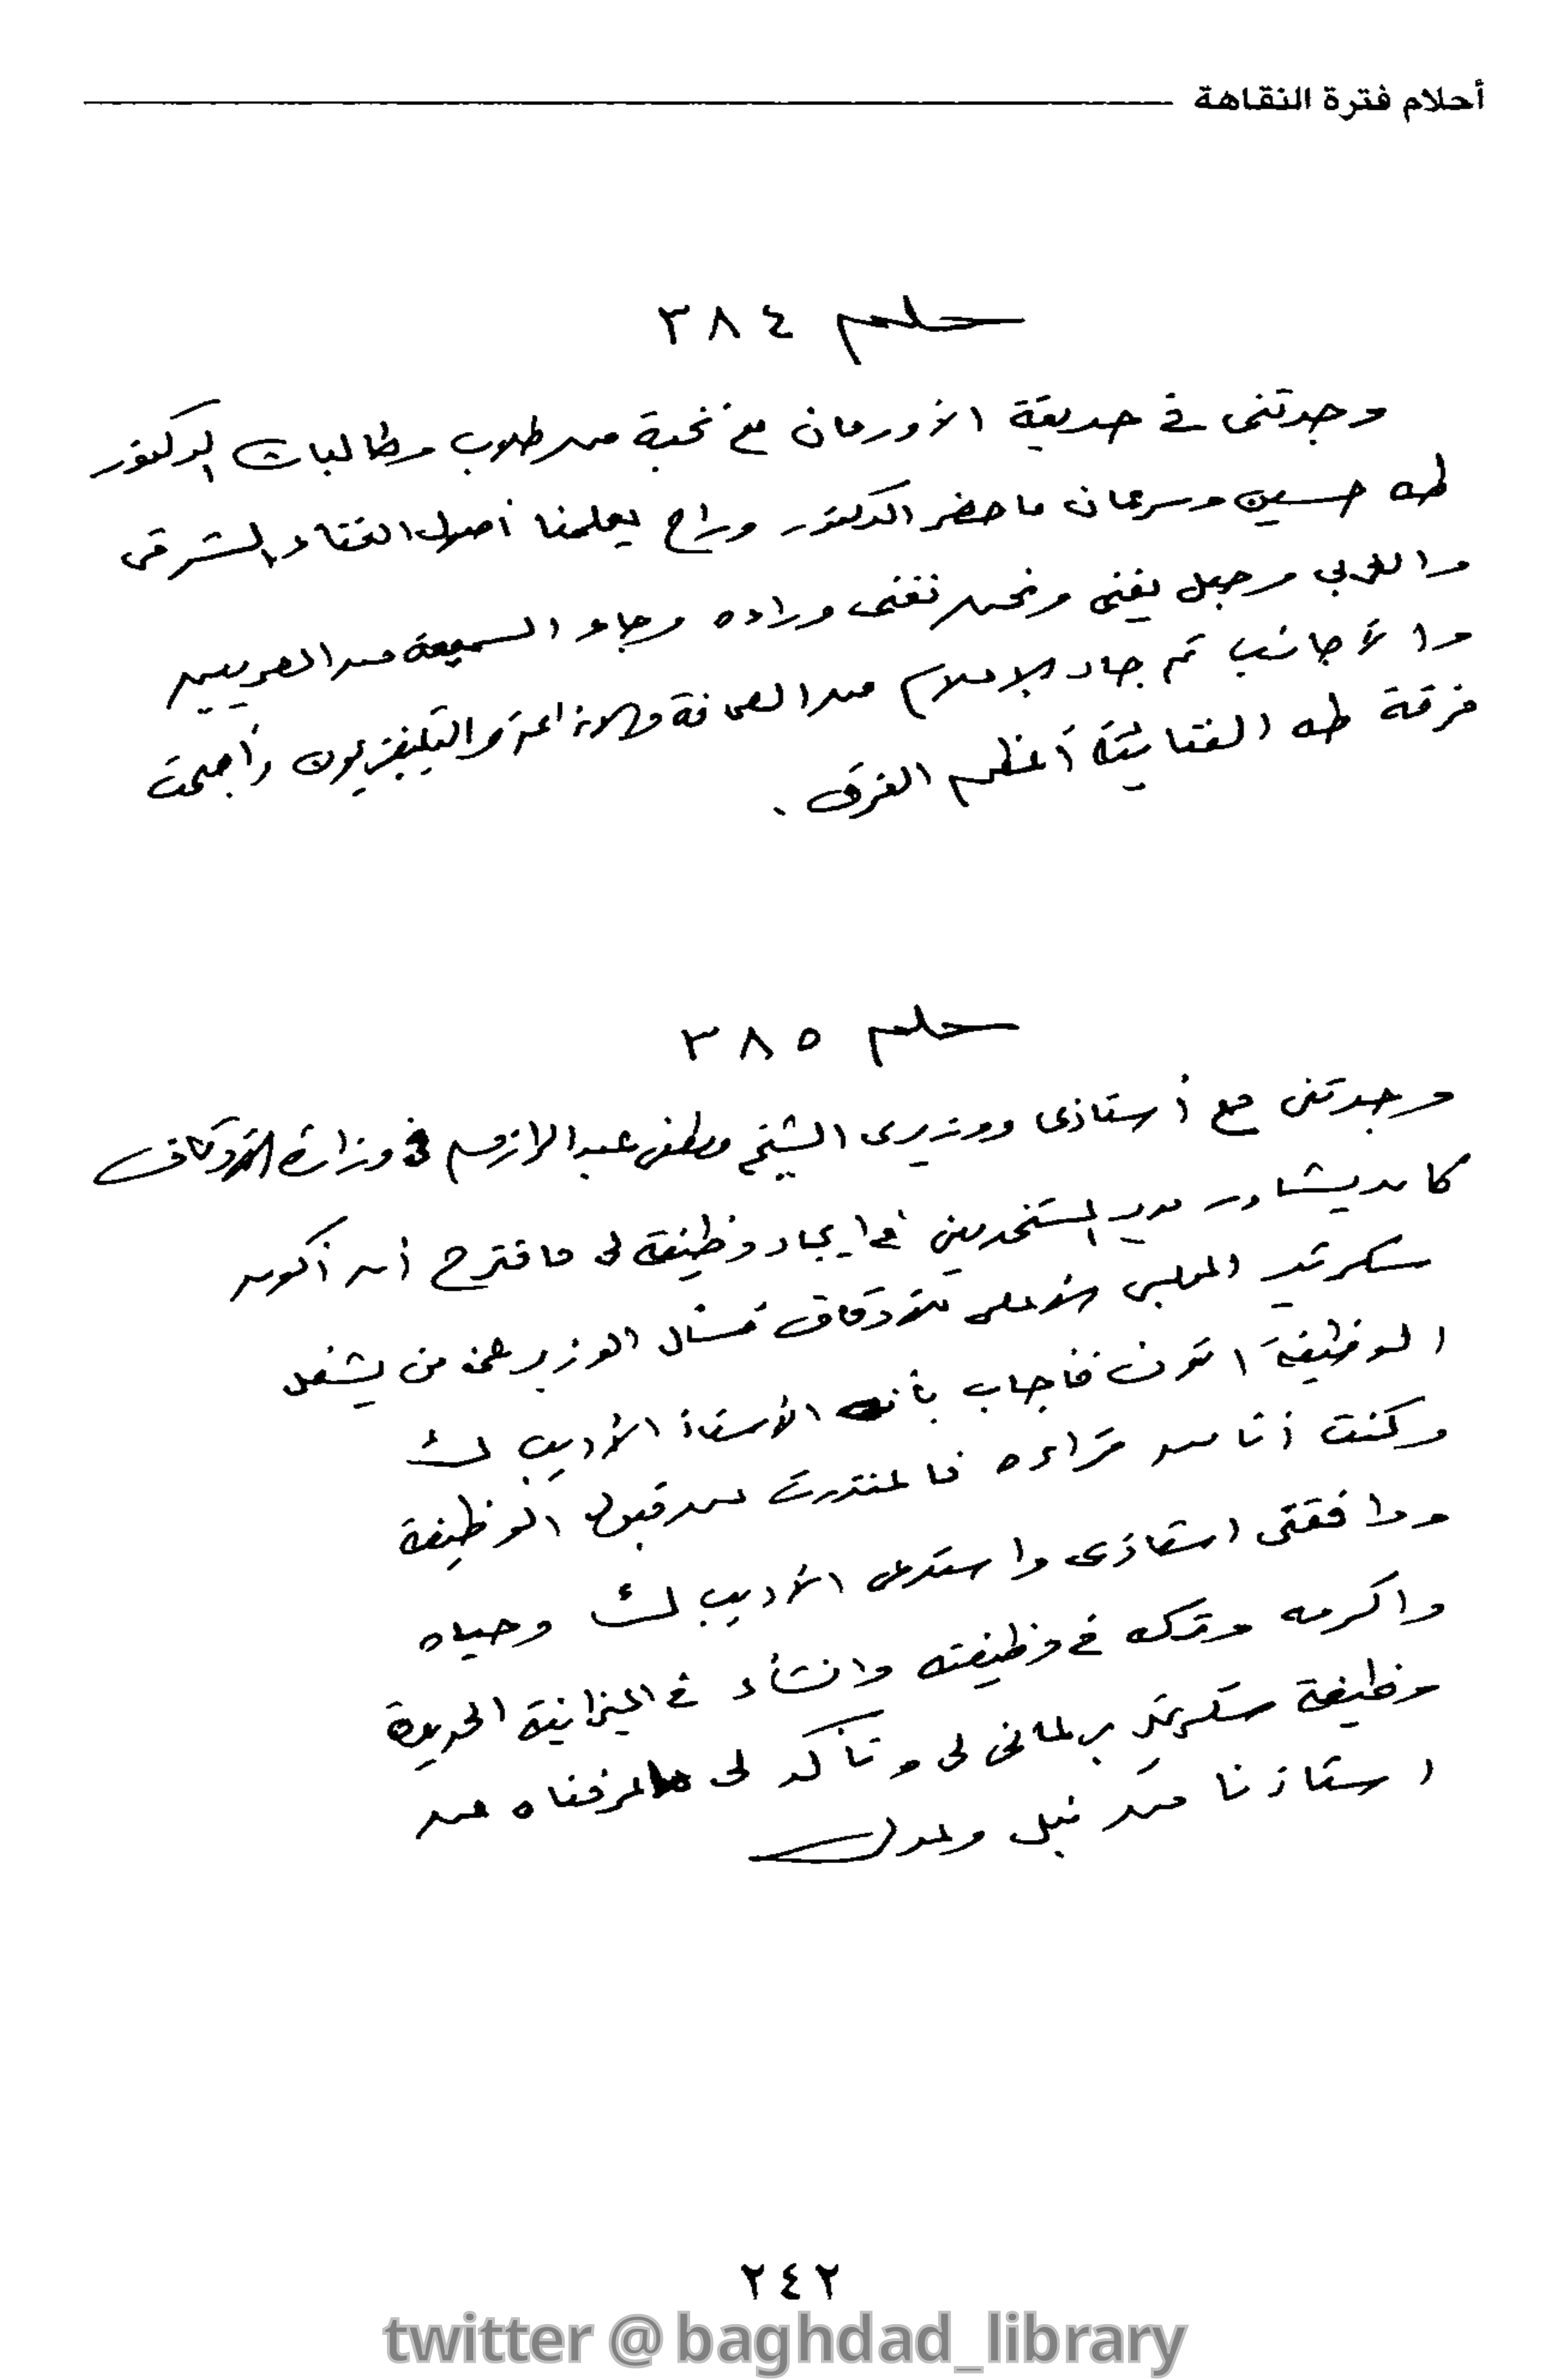 أحلام فترة النقاهة
حلم ٣٨٤
وجدتنى فى حديقة الأورمان مع نخبة من طلاب وطالبات الدكتور
طه حسين وسرعان ما حضر الدكتور وراح يعلمنا أصول الغناء الشرقى
والغربي وجعل يغنى ونحن نغنى وراءه وجاء السميعة من المصريين
والأجانب ثم جاء الإعلام من الصحافة والإذاعة والتليفزيون وأصبحت
فرقة طه الغنائية أعظم الفرق .
حلم ٣٨٥
وجدتنى مع أستاذى ووزيرى الشيخ مصطفى عبد الرازق فى وزارة الأوقاف
كان يشاور مدير المستخدمين فى ايجاد وظيفة لى فاقترح أن أكون
سكرتير المجلس الأعلى للأوقاف فسأل الوزير عمن يشغل
الوظيفة الآن فأجاب بأنه الأستاذ الأديب ك
وكنت أنا من قراءه فاعتذرت عن قبول الوظيفة
ووافقنى استاذى واستدعى الأديب ك وحياه
واكرمه وتركه فى وظيفته وانشأ فى الميزانية الجديدة
وظيفة سكرتير برلمانى لى وتأكد لى ما عرفناه عن
استاذنا من نبل وعدل
٢٤٢
twitter @baghdad_library